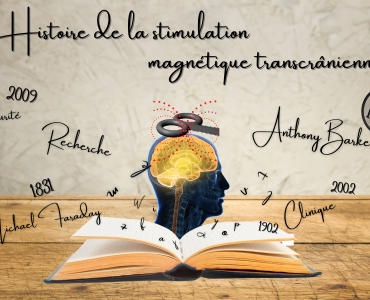 Histoire de la stimulation
magnétique transcrânienn
2009
urité
Recherche
Anthony Barke
1831
ichael Faraday
2002
Clinique
1902